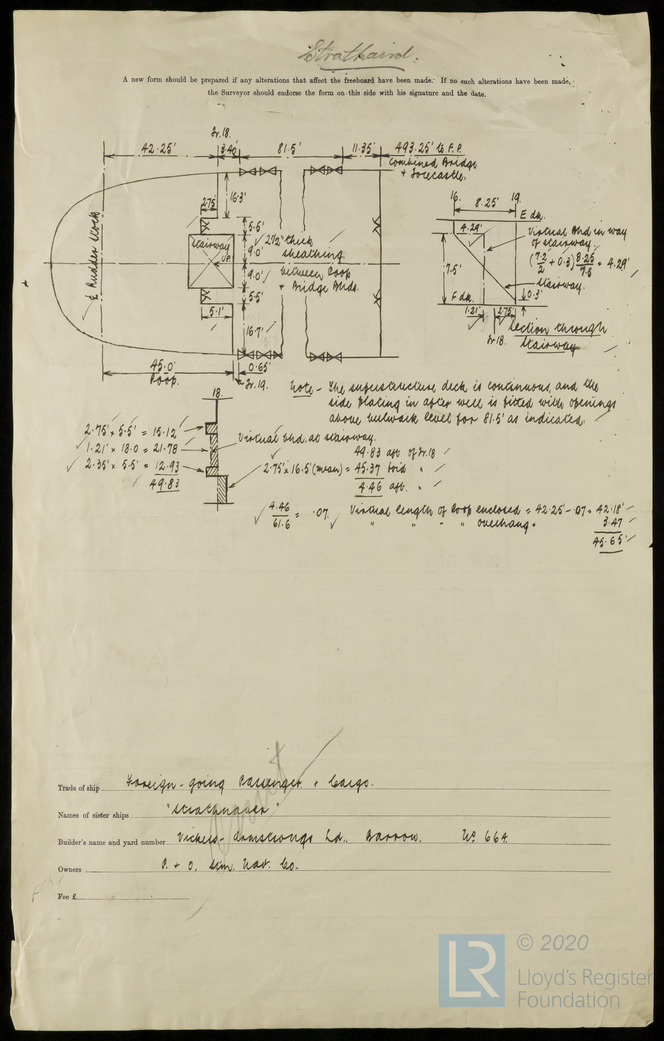 Strathaird.
A new form should be prepared if any alterations that affect the freeboard have been made. If no such alterations have been made,
the Surveyor should endorse the form on this side with his signature and the date.
fr. 18.
42.25' 3.40 81.5' 11.35' 493.25' to F.P.
Combined Bridge
+ Forecastle.
16.3'
2.75
5.5'
Stairway
UP
9.0'
9.0'
5.5'
5.1'
16.7'
2½" thick
sheathing
between Poop
+ Bridge Bhds.
℄ Rudder Stock
45.0'
Poop.
0.65'
fr. 19.
16. 19.
8.25'
E dk.
4.29'
Virtual Bhd in way
of stairway.
(7.2/2 + 0.3) 8.25/7.5 = 4.29'
7.5'
Stairway.
F dk.
0.3'
1.21' 2.75
fr 18.
Section through
Stairway
Note - The superstructure deck is continuous, and the
side plating in after well is fitted with openings
above bulwark level for 81.5' as indicated.
18.
2.75' x 5.5' = 15.12'
1.21' x 18.0 = 21.78
2.35' x 5.5' = 12.93
49.83
Virtual Bhd. at stairway.
2.75' x 16.5' (mean) =
49.83 aft of fr 18
45.37 fwd " "
4.46 aft. " "
4.46/61.6 = .07.
Virtual length of Poop enclosed = 42.25' - .07 = 42.18'
" " " " overhang = 3.47
45.65'
Trade of ship Foreign-going Passenger & Cargo.
Names of sister ships "Strathnaver"
Builder's name and yard number Vickers-Armstrongs Ld., Barrow. No 664.
Owners P. & O. Stm. Nav. Co.
Fee £
LR
© 2020
Lloyd's Register
Foundation